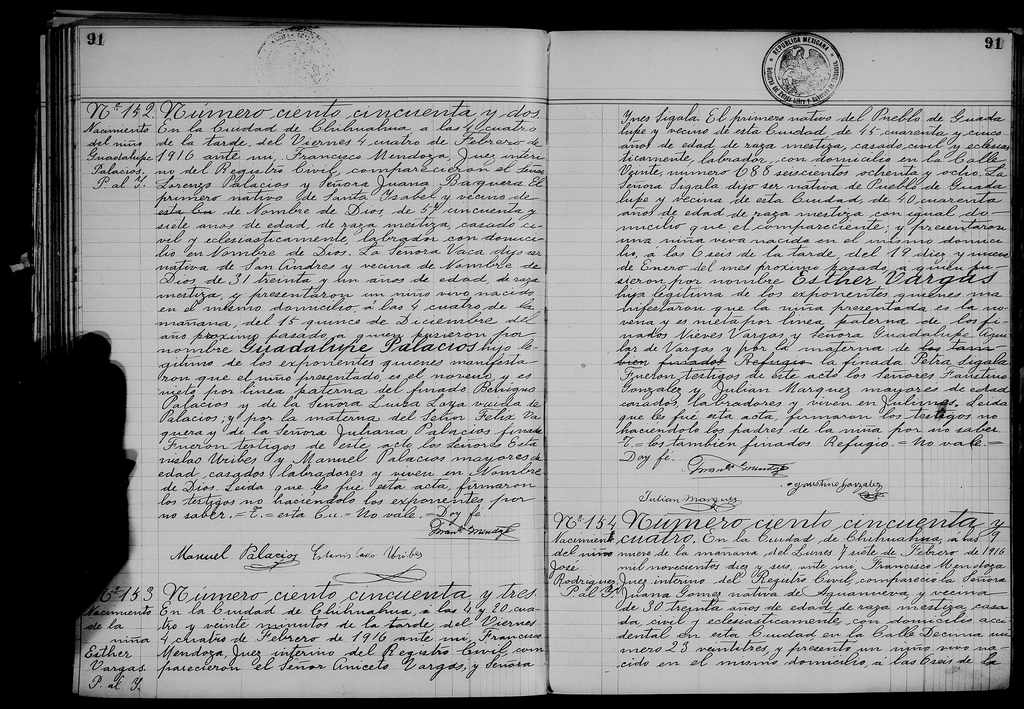 91
Nº 152.
Nacimiento
del niño
Guadalupe
Palacios.
P. al Y.
Número ciento cincuenta y dos
En la Ciudad de Chihuahua á las 4 cuatro
de la tarde, del Viernes 4 cuatro de Febrero de
1916 ante mi, Francisco Mendoza, Juez interi-
no del Registro Civil, comparecieron el Señor
Lorenzo Palacios y Señora Juana Baquera. El
primero nativo de Santa Ysabel y vecino de
esta Cu de Nombre de Dios, de 57 cincuenta y
siete años de edad, de raza mestiza, casado ci-
vil y eclesiasticamente, labrador con domici-
lio en Nombre de Dios. La Señora Vaca dijo ser
nativa de San Andres y vecina de Nombre de
Dios de 31 treinta y un años de edad, de raza
mestiza, y presentaron un niño vivo nacido
en el mismo domicilio á las 4 cuatro de la
mañana, del 15 quince de Diciembre del
año proximo pasado a quien pusieron por
nombre Guadalupe Palacios hijo le-
gitimo de los exponentes quienes manifesta-
ron que el niño presentado es el noveno y es
nieto por linea paterna del finado Benigno
Palacios y de la Señora Luisa Loya vecina de
Palacios, y por la materna del Señor Felix Va-
quera y de la Señora Juliana Palacios finada
Fueron testigos de este acto los Señores Esta-
nislao Uribes y Manuel Palacios mayores de
edad, casados, labradores y viven en Nombre
de Dios. Leida que les fue esta acta, firmaron
los testigos no haciendolo los exponentes por
no saber. = T. = esta Cu. = No vale. = Doy fe
Franco Mendoza
Manuel Palacios Estanislado Uribes
Nº 153
Nacimiento
de la
niña
Esther
Vargas.
P. al Y.
Número ciento cincuenta y tres
En la Ciudad de Chihuahua, á las 4 y 20 cua-
tro y veinte minutos de la tarde del Viernes
4 cuatro de Febrero de 1916 ante mi, Francisco
Mendoza, Juez interino del Registro Civil, com-
parecieron el Señor Aniceto Vargas, y Señora
91
REPUBLICA MEXICANA
Ynes Sigala. El primero nativo del Pueblo de Guada-
lupe y vecino de esta Ciudad, de 45 cuarenta y cinco
años de edad, de raza mestiza, casado civil y eclesias-
ticamente, labrador, con domicilio en la Calle
Veinte, numero 688 seiscientos ochenta y ocho. La
Señora Sigala dijo ser nativa de Pueblo de Guada-
lupe y vecina de esta Ciudad, de 40 cuarenta
años de edad de raza mestiza con igual do-
micilio que el compareciente; y presentaron
una niña viva nacida en el mismo domici-
lio, á las 6 seis de la tarde del 19 diez y nueve
de Enero del mes proximo pasado, a quien pu-
sieron por nombre Esther Vargas
hija legitima de los exponentes quienes ma-
nifestaron que la niña presentada es la no-
vena y es nieta por linea paterna de los fi-
nados Nieves Vargas y Señora Guadalupe Agui-
lar de Vargas y por la materna de los tam-
bien finados Refugio la finada Petra Sigala.
Fueron testigos de este acto los Señores Faustino
Gonzalez y Julian Marquez mayores de edad
casados, labradores y viven en Julimes. Leida
que les fué esta acta, firmaron los testigos no
haciendolo los padres de la niña por no saber
T. = los tambien finados Refugio. = No vale. =
Doy fé.
Franco Mendoza
Faustino Gonzalez
Julian Marquez
Nº 154
Nacimiento
del niño
José
Rodriguez.
P. al Y.
Número ciento cincuenta y
cuatro. En la Ciudad de Chihuahua, a las 9
nueve de la mañana del Lunes 7 siete de Febrero de 1916
mil novecientos diez y seis, ante mi, Francisco Mendoza
Juez interino del Registro Civil, compareció la Señora
Juana Gomes nativa de Aguanueva, y vecina
de 30 treinta años de edad de raza mestiza, casa-
da civil y eclesiasticamente, con domicilio acci-
dental en esta Ciudad en la Calle Decima nu-
mero 23 veintitres, y presento un niño vivo na-
cido en el mismo domicilio, á las 6 seis de la